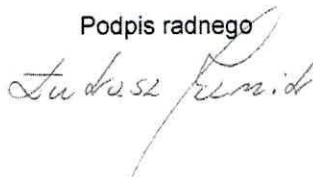 Podpis radnego
Łukasz